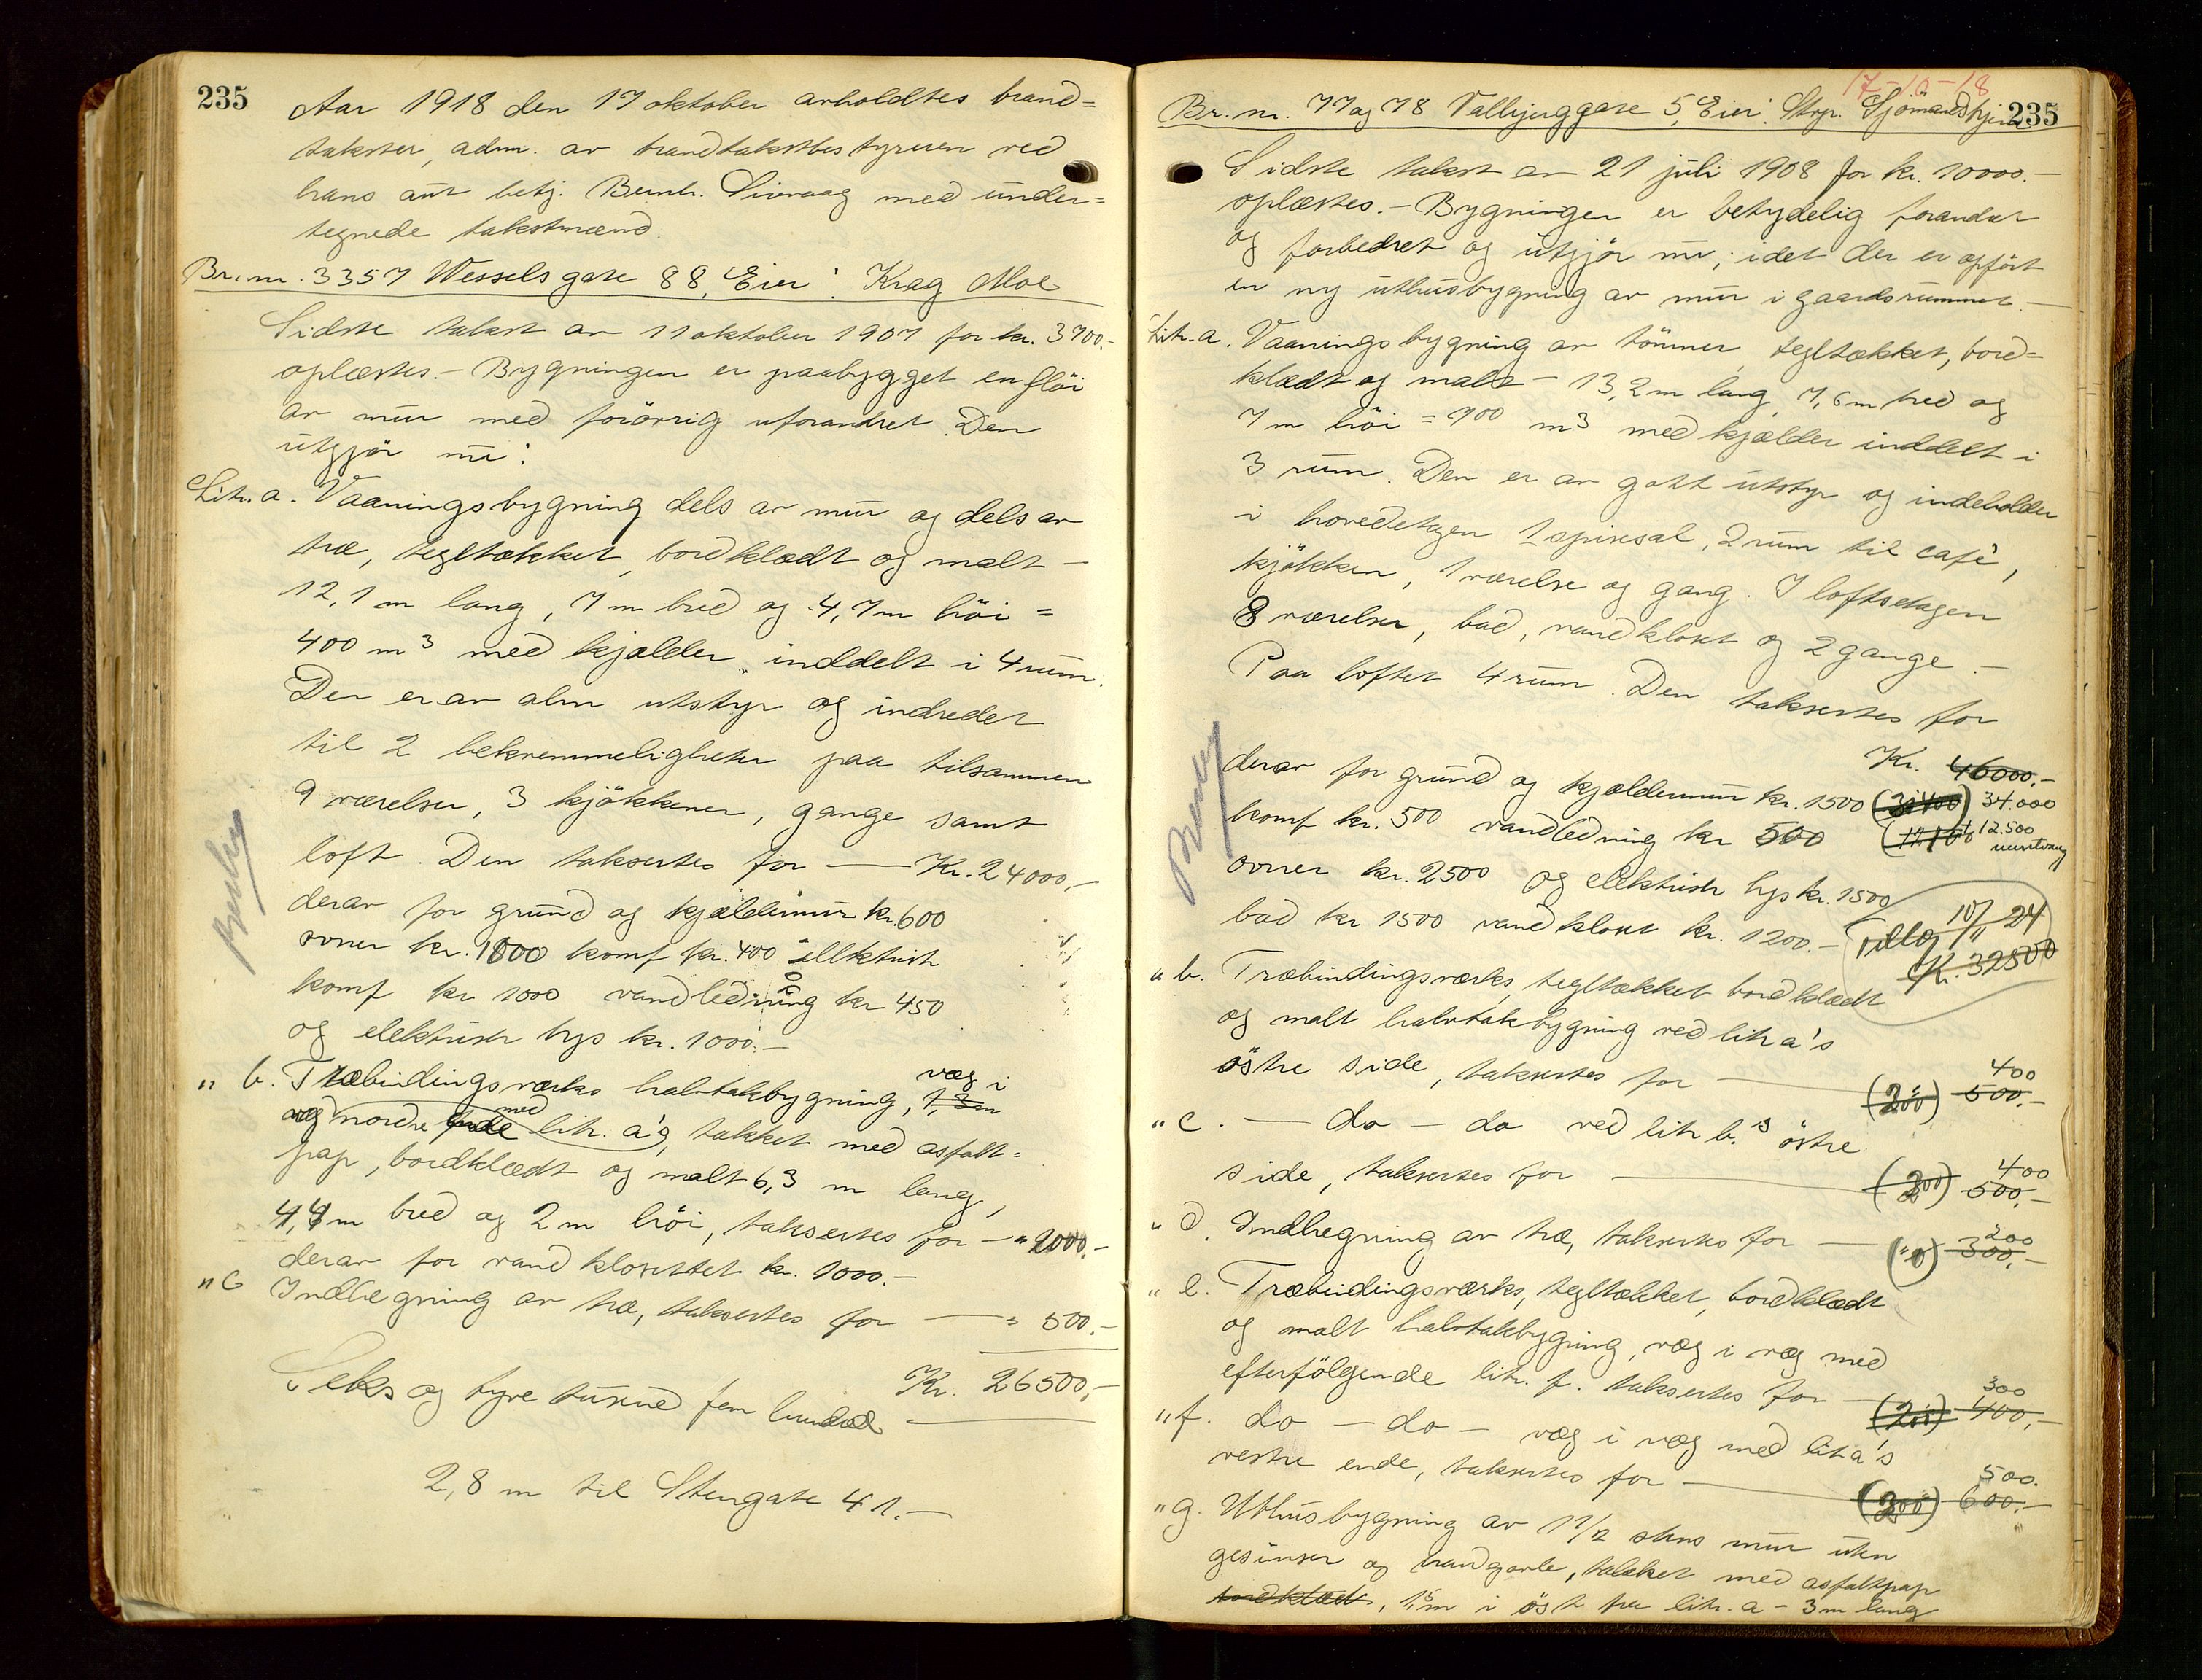 235
Aar 1918 den 17 oktober avholdtes brand=
takster, adm. av brandtakstbestyreren ved
hans aut betj. Bernh. Sivraag med under=
tegnede takstmænd.
Br. nr. 3357 Wessels gate 88, Eier: Krag Moe
Sidste takst av 11 oktober 1907 for kr. 3700.-
oplæstes. - Bygningen er paabygget en fløi
av mur med forøvrig uforandret. Den
utgjør nu:
Litr. a. Vaaningsbygning dels av mur og dels av
træ, tegltækket, bordklædt og malt -
12,1 m lang, 7 m bred og 4,7 m høi =
400 m3 med kjælder inddelt i 4 rum.
Den er av alm utstyr og indredet
til 2 bekvemmeligheter paa tilsammen
9 værelser, 3 kjøkkener, gange samt
loft. Den taksertes for — Kr. 24000,-
derav for grund og kjældermur kr. 600
ovner kr. 1000 komf kr. 400 elektrisk
komf kr 1000 vandledning kr 450
og elektrisk lys kr. 1000.-
" b. Træbindingsverks halvtakbygning, 1,3m væg i
væg nordre ende med litr. a's, tækket med asfalt=
pap, bordklædt og malt 6,3 m lang,
4,4 m bred og 2 m høi, taksertes for — " 2000.-
derav for vandklosettet kr. 1000.-
" c Indhegning av træ, taksertes for — " 500.-
Kr. 26500,-
Seks og tyve tusind fem hundrede —
2,8 m til Stengate 41.-
17-10-18
Br. nr. 77 og 78 Valbjerggate 5, Eier: Stvgr. Sjømandshjem
235
Sidste takst av 21 juli 1908 for kr. 10000.-
oplæstes. - Bygningen er betydelig forandret
og forbedret og utgjør nu; idet der er opført
en ny uthusbygning av mur i gaardsrummet. -
Litr. a. Vaaningsbygning av tømmer, tegltækket, bord=
klædt og malt - 13,2 m lang, 7,6 m bred og
7 m høi = 700 m3 med kjælder inddelt i
3 rum. Den er av godt utstyr og indeholder
i hovedetagen 1 spisesal, 2 rum til café,
kjøkken, 1 værelse og gang. I loftsetagen
8 værelser, bad, vandkloset og 2 gange. -
Paa loftet 4 rum. Den taksertes for
Kr. 46000,-
derav for grund og kjældermur kr. 1500 34.000
komf kr. 500 vandledning kr 500 + 12.500
ovner kr. 2500 og elektrisk lys kr. 1500
bad kr 1500 vandkloset kr. 1200.-
Tillæg 10/11 24
Kr. 32500
" b. Træbindingsværks, tegltækket bordklædt
og malt halvtakbygning ved litr a's
østre side, taksertes for — (200) 500.- 400
" c. — do — do ved litr b.'s østre
side, taksertes for — (200) 500,- 400
" d. Indhegning av træ, taksertes for — 300,- 200
" e. Træbindingsværks, tegltækket, bordklædt
og malt halvtakbygning, væg i væg med
efterfølgende litr. f. taksertes for — (200) 400,- 300
" f. do — do — væg i væg med litr a's
vestre ende, taksertes for — (300) 600.- 500.
" g. Uthusbygning av 1 1/2 stens mur uten
gesimser og brandgavle, tækket med asfaltpap
bordklædt, 1,5m i øst fra litr. a - 3 m lang